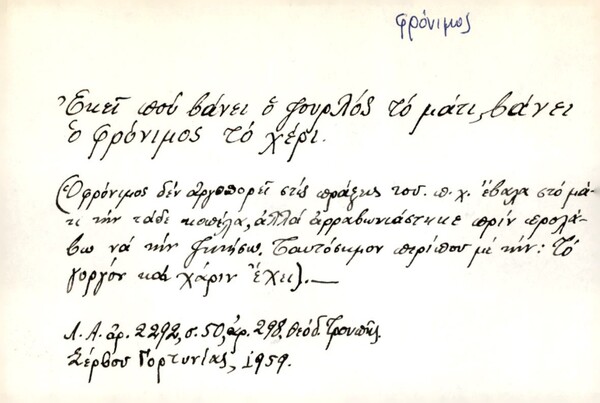 φρόνιμος
Ἐκεῖ πού βάνει ὁ ζουρλός τό μάτι, βάνει
ὁ φρόνιμος τό χέρι.
(Ὁ φρόνιμος δέν ἀργοπορεῖ στίς πράξεις του. π.χ. ἔβαλα στό μά-
τι τήν τάδε κοπέλα, ἀλλά ἀρραβωνιάστηκε πρίν προλά-
βω νά τήν ζητήσω. Ταυτόσημον περίπου μέ τήν: Τό
γοργόν καί χάριν ἔχει).—
Λ.Α. ἀρ. 2292, σ. 50, ἀρ. 298, Θεόδ. Τρουπῆς.
Σέρβου Γορτυνίας, 1959.